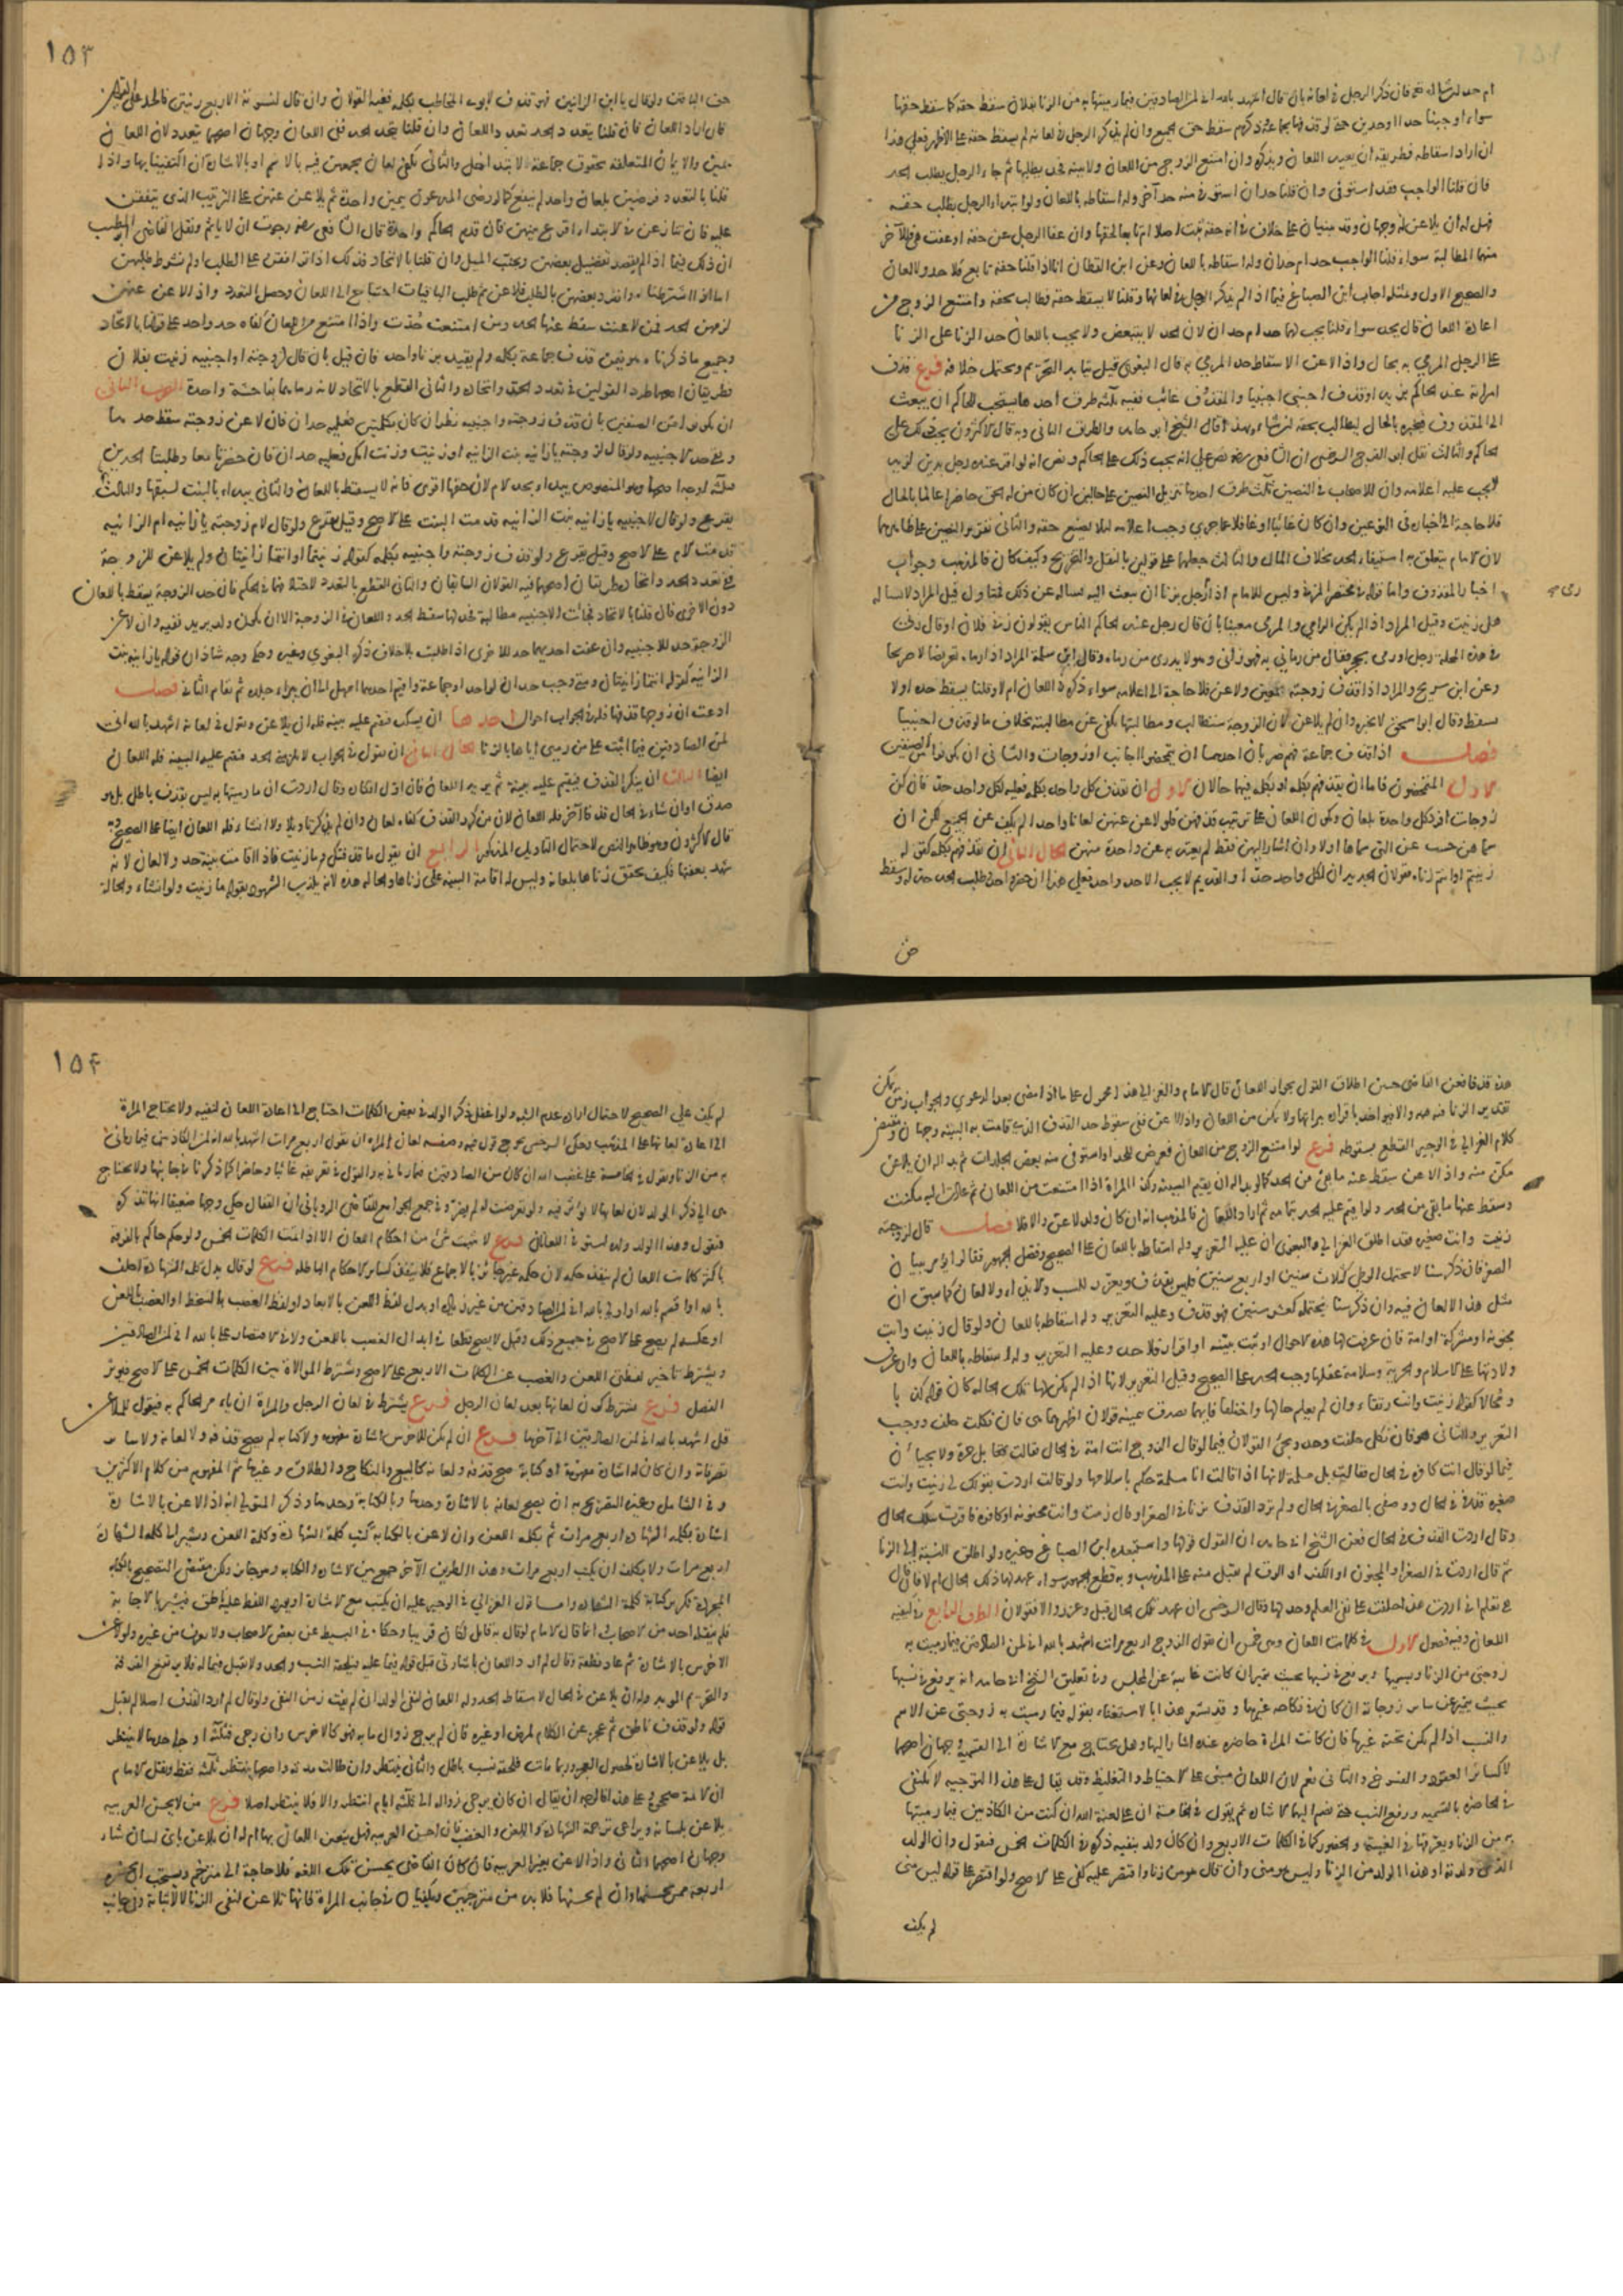 ام حد لرشاله فان ذكر الرجل في لعانه بان قال اشهد بالله اني لمن الصادقين فيما رميتها به من الزنا بفلان سقط حقه كما سقط حقها
سواء اوجبنا حدا او حدين لو قذفها بجماعة ذكرهم سقط حق الجميع وان لم يذكر الرجل في لعانه لم يسقط حقه على الاظهر فعلى هذا
ان اراد اسقاطه فطريقه ان يعيد اللعان ويذكره وان امتنع الزوج من اللعان ولا بينة فحد بطلبها ثم جاء الرجل يطلب الحد
فان قلنا الواجب حد فقد استوفى وان قلنا حدان استوفى منه حد آخر وله اسقاطه باللعان ولو ابتداء الرجل يطلب حقه
فهل له ان يلاعن وجهان وقد يبنيان على خلاف في ان حقه يثبت اصلا ام تابعا لحقها وان عفا الرجل عن حقه او عفت هي فللآخر
منهما المطالبة سواء قلنا الواجب حد ام حدان وله اسقاطه باللعان وعن ابن القطان انا اذا قلنا حقه تابع فلا حد ولا لعان
والصحيح الاول وبمثله اجاب ابن الصباغ فيما اذا لم يذكر الرجل في لعانها وقلنا لا يسقط حقه فطالب بحقه وامتنع الزوج من
اعادة اللعان قال يحد سواء قلنا يجب لهما حد ام حدان لان الحد لا يتبعض ولا يجب باللعان حد الزنا على الزنا
على الرجل المرمي به بحال واذا لاعن الاسقاط حد المرمي به قال البغوي قيل يتابد التحريم ويحتمل خلافه فرع قذف
امراته عند الحاكم بزيد او قذف اجنبي اجنبيا والمقذوف غائب ففيه ثلثة طرف احدها يستحب للحاكم ان يبعث
الى المقذوف فيخبره بالحال ليطالب بحقه ان شاء وبهذا قال الشيخ ابو حامد والطرف الثاني وبه قال الاكثرون يجب ذلك على
الحاكم والثالث نقل ابو الفرج السرخسي ان الشافعي رضه نص على انه يجب ذلك على الحاكم ونص انه لو اقر عنده رجل بدين لزيد
لا يجب عليه اعلامه وان للاصحاب في النصين ثلث طرف احدها تنزيل النصين على حالين ان كان من له الحق حاضرا عالما بالحال
فلا حاجة الى اخباره في النوعين وان كان غائبا او غافلا عما جرى وجب اعلامه لئلا يضيع حقه والثاني تقرير النصين على ظاهرهما
لان الامام يتعلق به استيفاء الحد بخلاف المال والثالث جعلهما على قولين بالنقل والتخريج وكيف كان فالمذهب وجوب
اخبار المقذوف واما قوله في مختصر المزني وليس للامام اذا رمى رجل بزنا ان يبعث اليه يساله عن ذلك فتاول قيل المراد لا يساله
هل زنيت وقيل المراد اذا لم يكن الرامي والمرمي معينا بان قال رجل عند الحاكم الناس يقولون زنى فلان او قال زنى
في هذه المحلة رجل او رمى بحجر فقال من رماني به فهو زاني وهو لا يدري من رماه وقال ابن سلمة المراد اذا رماه تعريضا لا صريحا
وعن ابن سريج والمراد اذا قذف زوجته بمعين ولاعن فلا حاجة الى اعلامه سواء ذكره في اللعان ام لا وقلنا يسقط حده او لا
يسقط وقال ابو اسحق لا يخبره وان لم يلاعن لان الزوجة ستطالب ومطالبتها تكفي عن مطالبته بخلاف ما لو قذف اجنبيا
فصل اذا قذف جماعة فهم ضربان احدهما ان يتمحضوا اجانب او زوجات والثاني ان يكونوا من الصنفين
الاول المتمحضون فاما ان يقذفهم بكلمة او بكلمه ففيهما حالان الاول ان يقذف كل واحد بكلمة فعليه لكل واحد حد فان كن
زوجات افرد كل واحدة بلعان ويكون اللعان على ترتيب قذفهن فلو لاعن عنهن لعانا واحدا لم يكف عن الجميع لكن ان
سماهن حسب عن التي سماها اولا وان اشار اليهن فقط لم يعتد به عن واحدة منهن الحال الثاني ان يقذفهم بكلمة كقوله
زنيتم او انتم زناة فقولان الجديد ان لكل واحد حدا والقديم لا يجب الا حد واحد فعلى هذا ان حضر واحد وطلب الحد حد له وسقط
حق
١٥٣
حق الباقين ولو قال يا ابن الزانيين فهو قذف لابوي المخاطب بكلمة ففيه القولان وان قال لنسوته الاربع زنيتن فالحد على القولين
فان اراد اللعان فان قلنا يتعدد الحد تعدد اللعان وان قلنا يتحد الحد ففي اللعان وجهان اصحهما يتعدد لان اللعان
يمين والايمان المتعلقة بحقوق جماعة لا تتداخل والثاني يكفي لعان يجمعهن فيه بالاسم او بالاشارة ان اكتفينا بها واذا
قلنا بالتعدد فرضين بلعان واحد لم ينفع كما لو رضي المدعون بيمين واحدة ثم يلاعن عنهن على الترتيب الذي يتفقن
عليه فان تنازعن في الابتداء اقرع بينهن فان قدم الحاكم واحدة قال الشافعي رضه رجوت ان لا ياثم ونقل القاضي ابو الطيب
ان ذلك فيما اذا لم يقصد تفضيل بعضهن وتجنب الميل وان قلنا بالاتحاد فذلك اذا توافقن على الطلب او لم نشرط طلبهن
اما اذا اشترطناه وانفرد بعضهن بالطلب فلاعن ثم طلب الباقيات احتاج الى اللعان وحصل التعدد واذا لاعن عنهن
لزمهن الحد فمن لاعنت سقط عنها الحد ومن امتنعت حدت واذا امتنع من اللعان كفاه حد واحد على قولنا بالاتحاد
وجميع ما ذكرناه هو فيمن قذف جماعة بكلمة ولم يقيد بزنا واحد فان قيل بان قال لزوجته او اجنبية زنيت بفلان
فطريقان احدهما طرد القولين في تعدد الحد واتحاده والثاني القطع بالاتحاد لانه رماهما بفاحشة واحدة الضرب الثاني
ان يكونوا من الصنفين بان قذف زوجته واجنبيه نظر ان كان بكلمتين فعليه حدان فان لاعن عن زوجته سقط حدها
وبقي حد الاجنبية ولو قال لزوجته يا زانيه بنت الزانيه او زنيت وزنت امك فعليه حدان فان حضرتا معا وطلبتا الحدين
فثلثة اوجه اصحها وهو المنصوص يبداء بحد الام لان حقها اقوى فانه لا يسقط باللعان والثاني يبداء بالبنت لسبقها والثالث
يقرع ولو قال لاجنبيه يا زانيه بنت الزانيه قدمت البنت على الاصح وقيل يقرع ولو قال لام زوجته يا زانيه ام الزانيه
قدمت الام على الاصح وقيل يقرع ولو قذف زوجته واجنبيه بكلمه كقوله زنيتما او انتما زانيتان ولم يلاعن للزوجة
ففي تعدد الحد واتحاده طريقان اصحهما فيه القولان السابقان والثاني القطع بالتعدد لاختلافهما في الحكم فان حد الزوجة يسقط باللعان
دون الاخرى فان قلنا بالاتحاد فجاءت الاجنبيه مطالبة فحد لها سقط الحد واللعان في الزوجة الا ان يكون ولد يريد نفيه وان لاعن
الزوجة حد للاجنبيه وان عفت احديهما حد للاخرى اذا طلبت بلا خلاف ذكره البغوي وغيره وحكي وجه شاذ ان قوله يا زانيه بنت
الزانيه كقوله انتما زانيتان ومتى وجب حدان لواحد او جماعة واقيم احدهما امهل الى ان يبرء جلده ثم يقام الثاني فصل
ادعت ان زوجها قذفها فله في الجواب احوال احدها ان يسكت فتقيم عليه بينه فله ان يلاعن ويقول في لعانه اشهد بالله اني
لمن الصادقين فيما اثبت علي من رميي اياها بالزنا الحال الثاني ان يقول في الجواب لا يلزمني الحد فتقيم عليه البينة فله اللعان
ايضا الثالث ان ينكر القذف فتقيم عليه بينة ثم يريد اللعان فان اول انكاره وقال اردت ان ما رميتها به ليس بقذف باطل بل هو
صدق او انشاء في الحال قذفا آخر فله اللعان لان من كرر القذف كفاه لعان وان لم يذكر تاويلا ولا انشاء فله اللعان ايضا على الصحيح وبه
قال الاكثرون وهو ظاهر النص لاحتمال التاويل المذكور الرابع ان يقول ما قذفتك وما زنيت فاذا اقامت بينة حد ولا لعان لانه
شهد بعفتها فكيف يحقق زناها بلعانه وليس له اقامة البينة على زناها والحالة هذه لانه يكذب الشهود بقوله ما زنيت ولو انشاء والحالة
هذه قذفا فعن القاضي حسين اطلاق القول بجواز اللعان قال الامام والغزالي هذا محمول على ما اذا مضى بعد الدعوى والجواب زمن يمكن
تقدير الزنا فيه والا فيواخذ باقراره ببراءتها ولا يمكن من اللعان واذا لاعن ففي سقوط حد القذف الذي قامت به البينه وجهان ومقتضى
كلام الغزالي في الوجيز القطع بسقوطه فرع لو امتنع الزوج من اللعان فعرض للحد او استوفي منه بعض الجلدات ثم بدا له ان يلاعن
مكن منه واذا لاعن سقط عنه ما بقي من الحد كما لو بدا له ان يقيم البينه وكذا المراة اذا امتنعت من اللعان ثم عادت اليه مكنت
وسقط عنها ما بقي من الحد ولو اقيم عليه الحد بتمامه ثم اراد اللعان فالمذهب انه ان كان ولد لاعن والا فلا فصل قال لزوجته
زنيت وانت صغيره فقد اطلق الغزالي والبغوي ان عليه التعزير وله اسقاطه باللعان على الصحيح وفصل الجمهور فقالوا يؤمر ببيان
الصغر فان ذكر سنا لا يحتمل الوطى كثلاث سنين او اربع سنين فليس بقذف ويعزر للسب والايذاء ولا لعان كما سبق ان
مثل هذا لا لعان فيه وان ذكر سنا يحتمله كعشر سنين فهو قذف وعليه التعزير وله اسقاطه باللعان ولو قال زنيت وانت
مجنونة او مشركة او امة فان عرفت لها هذه الاحوال او ثبت ببينه او اقرار فلا حد وعليه التعزير وله اسقاطه باللعان وان عرف
ولادتها على الاسلام والحرية وسلامة عقلها وجب الحد على الصحيح وقيل التعزير لانها اذا لم يكن لها تلك الحالة كان قوله كذبا
ومحالا كقوله زنيت وانت رتقاء وان لم يعلم حالها واختلفا فايهما يصدق بيمينه قولان اظهرهما هي فان نكلت حلف ووجب
التعزير والثاني هو فان نكل حلفت وحد ويجئ القولان فيما لو قال الزوج انت امة في الحال فقالت بل حرة ولا يجيان
فيما لو قال انت كافره في الحال فقالت بل مسلمة لانها اذا قالت انا مسلمة حكم باسلامها ولو قالت اردت بقولك لي زنيت وانت
صغيره قذفي في الحال ووصفي بالصغر في الحال ولم ترد القذف بزنا في الصغر او قال زنيت وانت مجنونه او كافره فاقرت بتلك الحال
وقال اردت القذف في الحال فعن الشيخ ابي حامد ان القول قولها واستبعده ابن الصباغ وغيره ولو اطلق النسبة الى الزنا
ثم قال اردت في الصغر او الجنون او الكفر او الرق لم يقبل منه على المذهب وبه قطع الجمهور سواء عهد لها ذلك الحال ام لا فان قال
هي تعلم اني اردت هذا حلفت على نفي العلم وحد لها وقال السرخسي ان عهد تلك الحال قبل وعزر والا فقولان الطرف الرابع في كيفية
اللعان وفيه فصول الاول في كلمات اللعان وهي خمس ان يقول الزوج اربع مرات اشهد بالله اني لمن الصادقين فيما رميت به
زوجتي من الزنا ويسميها ويرفع في نسبها بحيث تتميز ان كانت غائبة عن المجلس وفي تعليق الشيخ ابي حامد انه يرفع في نسبها
بحيث يتميز عن سائر زوجاته ان كان في نكاحه غيرها وقد يشعر هذا بالاستغناء بقوله فيما رميت به زوجتي عن الاسم
والنسب اذا لم يكن تحته غيرها فان كانت المراة حاضره عنده اشار اليها وهل يحتاج مع الاشارة الى التسمية وجهان اصحهما
لا كسائر العقود والفسوخ والثاني نعم لان اللعان مبني على الاحتياط والتغليظ وقد يقال على هذا التوجيه لا يكتفي
في الحاضرة بالتسمية ورفع النسب حتى يضم اليهما الاشارة ثم يقول في الخامسة ان علي لعنة الله ان كنت من الكاذبين فيما رميتها
به من الزنا ويعرفها في الغيبة والحضور كما في الكلمات الاربع وان كان ولد ينفيه ذكره في الكلمات الخمس فيقول وان الولد
الذي ولدته او هذا الولد من الزنا وليس هو مني وان قال هو من زنا واقتصر عليه كفى على الاصح ولو اقتصر على قوله ليس مني
لم يكف
١٥٤
لم يكف على الصحيح لاحتمال ارادة عدم الشبه ولو اغفل ذكر الولد في بعض الكلمات احتاج الى اعادة اللعان لنفيه ولا تحتاج المراة
الى اعادة لعانها على المذهب وحكى السرخسي تخريج قول فيه وصفة لعان المراة ان تقول اربع مرات اشهد بالله انه لمن الكاذبين فيما رماني
به من الزنا وتقول في الخامسة علي غضب الله ان كان من الصادقين فيما رماني به والقول في تعريفه غائبا وحاضرا كما ذكرنا في جانبها ولا تحتاج
هي الى ذكر الولد لان لعانها لا يؤثر فيه ولو تعرضت له لم يضر وفي جمع الجوامع للقاضي الروياني ان القفال حكى وجها ضعيفا انها تذكره
فتقول وهذا الولد ولده ليستوي اللعانان فرع لا يثبت شئ من احكام اللعان الا اذا تمت الكلمات الخمس ولو حكم حاكم بالفرقة
باكثر كلمات اللعان لم ينفذ حكمه لان حكمه غير جائز بالاجماع فلا ينفذ كسائر الاحكام الباطلة فرع لو قال بدل كلمة الشهادة احلف
بالله او اقسم بالله او اولي بالله اني لمن الصادقين من غير زيادة او بدل لفظ اللعن بالابعاد او لفظ الغضب بالسخط او الغضب باللعن
او عكسه لم يصح على الاصح في جميع ذلك وقيل لا يصح قطعا في ابدال الغضب باللعن ولا في الاقتصار على بالله اني لمن الصادقين
ويشترط تاخير لفظتي اللعن والغضب عن الكلمات الاربع على الاصح ويشترط الموالاة بين الكلمات الخمس على الاصح فيؤثر
الفصل فرع يشترط كون لعانها بعد لعان الرجل فرع يشترط في لعان الرجل والمراة ان يامر الحاكم به فيقول للملاعن
قل اشهد بالله اني لمن الصادقين الى آخرها فرع ان لم يكن للاخرس اشارة مفهومة ولا كتابه لم يصح قذفه ولا لعانه ولا سائر
تصرفاته وان كان له اشارة مفهومة او كتابة صح قذفه ولعانه كالبيع والنكاح والطلاق وغيرها ثم المفهوم من كلام الاكثرين
وفي الشامل وغيره التصريح به ان يصح لعانه بالاشارة وحدها وبالكتابة وحدها وذكر المتولي انه اذا لاعن بالاشارة
اشار بكلمة الشهادة اربع مرات ثم بكلمة اللعن وان لاعن بالكتابة كتب كلمة الشهادة وكلمة اللعن ويشير الى كلمة الشهادة
اربع مرات ولا يكلف ان يكتب اربع مرات وهذا الطريق الآخر جمع بين الاشارة والكتابه وهو جائز ولكن مقتضى التصحيح بالكتابة
المجردة تكرير كتابة كلمة الشهادة واما قول الغزالي في الوجيز عليه ان يكتب مع الاشارة او يورد اللفظ عليه ناطق فيشير بالاجابة
فلم يقله احد من الاصحاب وانما قال الامام لو قال به قائل لكان قريبا وحكاه في البسيط عن بعض الاصحاب ولا يعرف من غيره ولو لاعن
الاخرس بالاشارة ثم عاد نطقه وقال لم ارد اللعان باشارتي قبل قوله فيما عليه فيلحقه النسب والحد ولا يقبل فيما له فلا ترتفع الفرقة
والتحريم المؤبد وله ان يلاعن في الحال لاسقاط الحد وله اللعان لنفي الولد ان لم يفت زمن النفي ولو قال لم ارد القذف اصلا لم يقبل
قوله ولو قذف ناطق ثم عجز عن الكلام لمرض او غيره فان لم يرج زوال ما به فهو كالاخرس وان رجي فثلثة اوجه احدها لا ينتظر
بل يلاعن بالاشارة لحصول العجز وربما مات فلحقه نسب باطل والثاني ينتظر وان طالت مدته واصحها ينتظر ثلثة فقط ونقل الامام
ان الائمة صححوه وعلى هذا فالوجه ان يقال ان كان يرجى زواله الى ثلثة ايام انتظر والا فلا ينتظر اصلا فرع من لا يحسن العربيه
يلاعن بلسانه ويراعي ترجمة الشهادة واللعن والغضب فان احسن العربيه فهل يتعين اللعان بها ام له ان يلاعن باي لسان شاء
وجهان اصحهما الثاني واذا لاعن بغير العربيه فان كان القاضي يحسن تلك اللغة فلا حاجة الى مترجم ويستحب ان يحضره
اربعة ممن يحسنها وان لم يحسنها فلا بد من مترجمين ويكفيان في جانب المراة فانها تلاعن لنفي الزنا لا لاثباته وفي جانبه